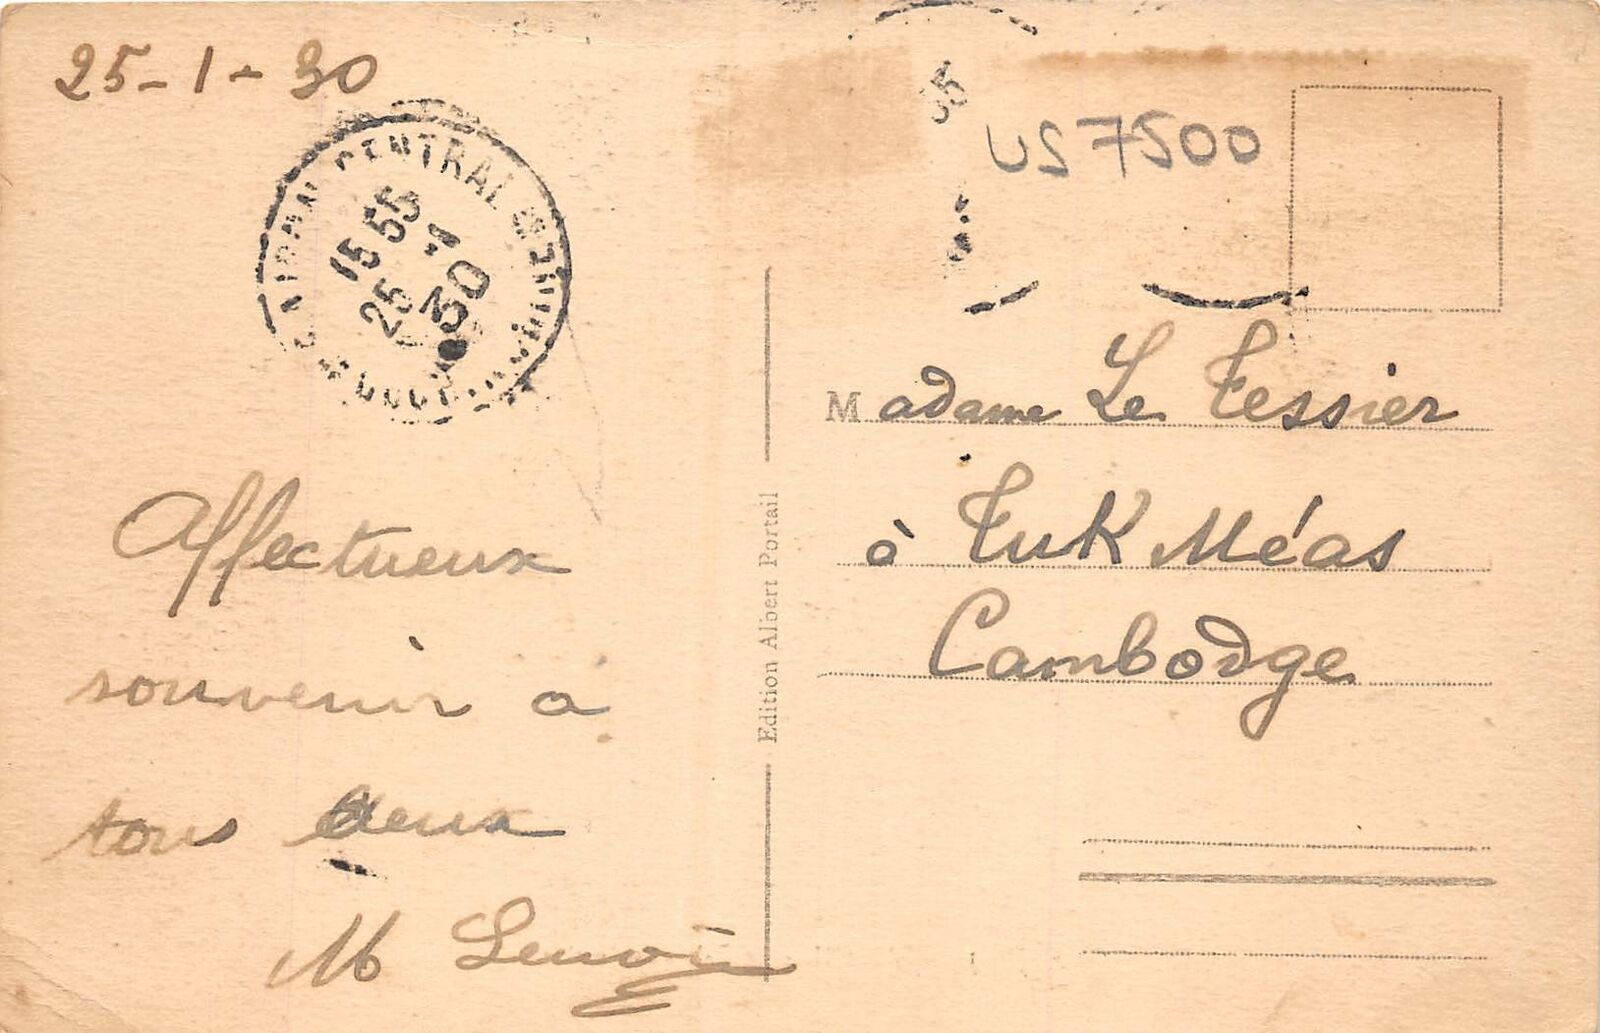 25-1-30
SAIGON CENTRAL
15 55
25 -1
30
Affectueux
souvenir à
tous deux
M Lenoir
Edition Albert Portail
US 7500
Madame Le Tessier
à Tuk Méas
Cambodge